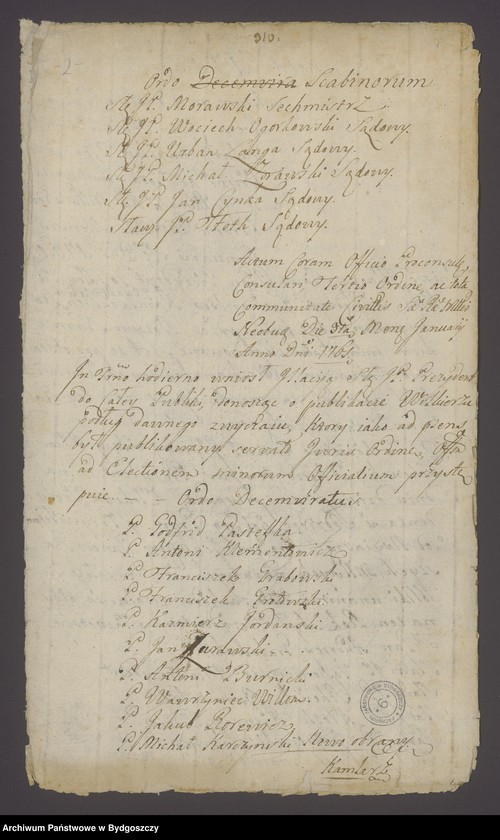 910.
2
Ordo Decemvira Scabinorum
Sł. JP. Morawski Sechmistrz
Sł. JP. Wociech Ogorkowski Sądowy.
Sł. JP. Urban Langa Sądowy.
Sł. JP. Michał Zorawski Sądowy.
Sł. JP. Jan Cynka Sądowy.
Sław. JP. Sądowy.
Actum Coram Officio Proconsul,
Consulari Tertio Ordine, ac tota
Communitate Civili
Die 3tia Mens January
Anno Dni 1761
In Trno hodierno wniosł Sł. JP. Prezydent
do całey Publiki, donosząc o publikacie Wilkierzu
podług dawnego zwyczaiu, ktory iako ad
był publikowany servato Juris Ordine,
ad Electionem minorum Officialium przystę
puie. — — Ordo Decemviratus
P. Godfrid Pasteffka
P. Antoni Klemontowicz
P. Franciszek Grabowski
P. Franciszek
P. Kazmierz Jordanski
P. Jan Zurawski
P. Antoni Burnicki
P. Wawrzyniec Willom.
P. Jakub Rorewicz
P. Michał Karczewski Nowo obrany
Kamlarz
Archiwum Państwowe w Bydgoszczy